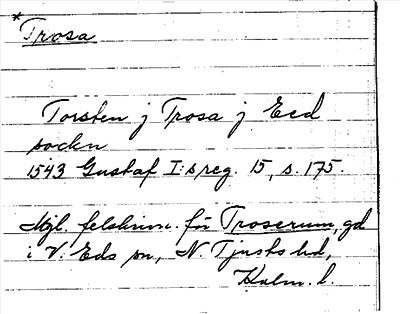 * Trosa
Torsten j Trosa j Eed
sockn
1543 Gustaf I:s reg. 15, s. 175.
Mjl. felskrivn. för Troserum, gd
i V. Eds sn, N. Tjusts hd,
Kalm. l.